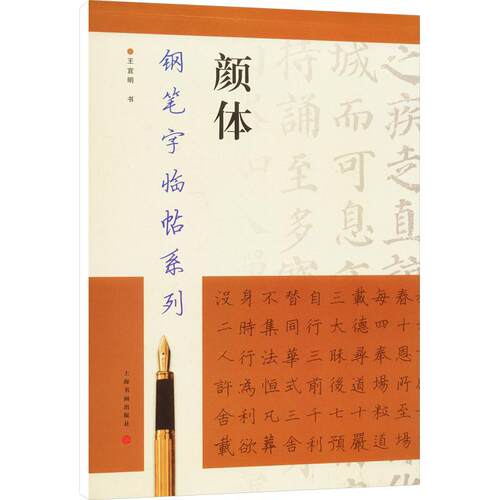 颜体
钢笔字临帖系列
王宜明 书
之疾走直
城而可息
持誦至多寶
没身不替自三載每春
二時集同行大德四十
人行法華三昧尋奉恩
許為恒式前後道場所
舍利凡三千七十粒至
載欲葬舍利預嚴道場
上海书画出版社